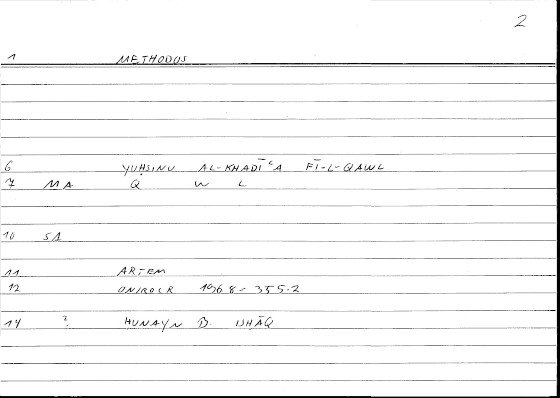 2
1 METHODOS
6 YUḤSINU AL-KHADĪʿA FĪ-L-QAWL
7 MA Q W L
10 SA
11 ARTEM
12 ONIROCR 196 8 - 355.2
14 ? ḤUNAYN B. ISḤĀQ